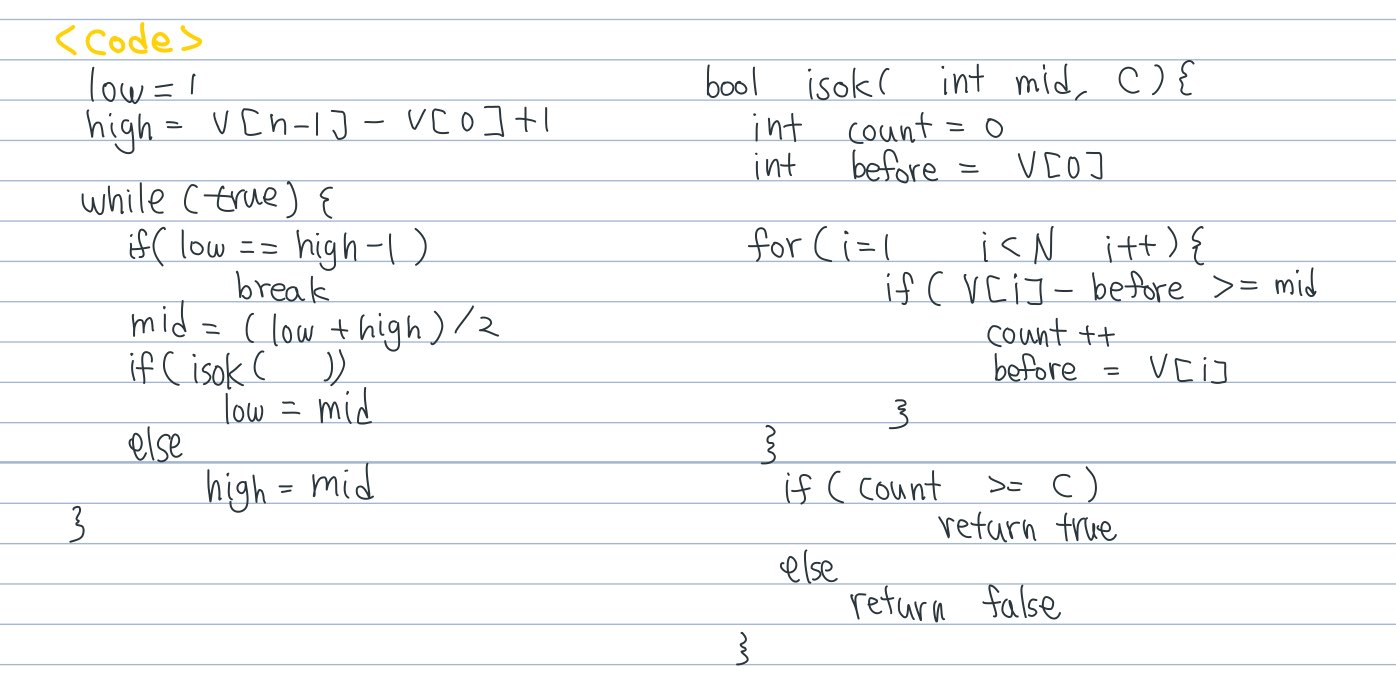 <Code>
low = 1
high = V[n-1] - V[0]+1
while (true) {
if( low == high-1 )
break
mid = (low + high)/2
if( isok( ))
low = mid
else
high = mid
}
bool isok( int mid, C){
int count = 0
int before = V[0]
for(i=1 i<N i++){
if( V[i] - before >= mid
count ++
before = V[i]
}
}
if( count >= C)
return true
else
return false
}